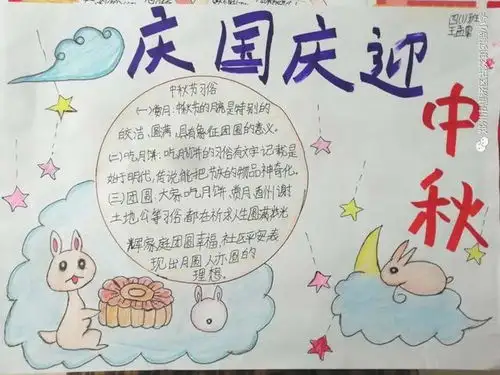 庆国庆迎
中秋
四(1)班
中秋节习俗
(一)赏月:中秋节的月亮是特别的
皎洁,圆满,具有象征团圆的意义。
(二)吃月饼:吃月饼的习俗有文字记载是
始于明代,传说能把节庆的物品神奇化。
(三)团圆:大家吃月饼,赏月酌谢
土地公等习俗都在祈求人生圆满
家庭团圆幸福,社区平安表
现出月圆人亦圆的
理想。